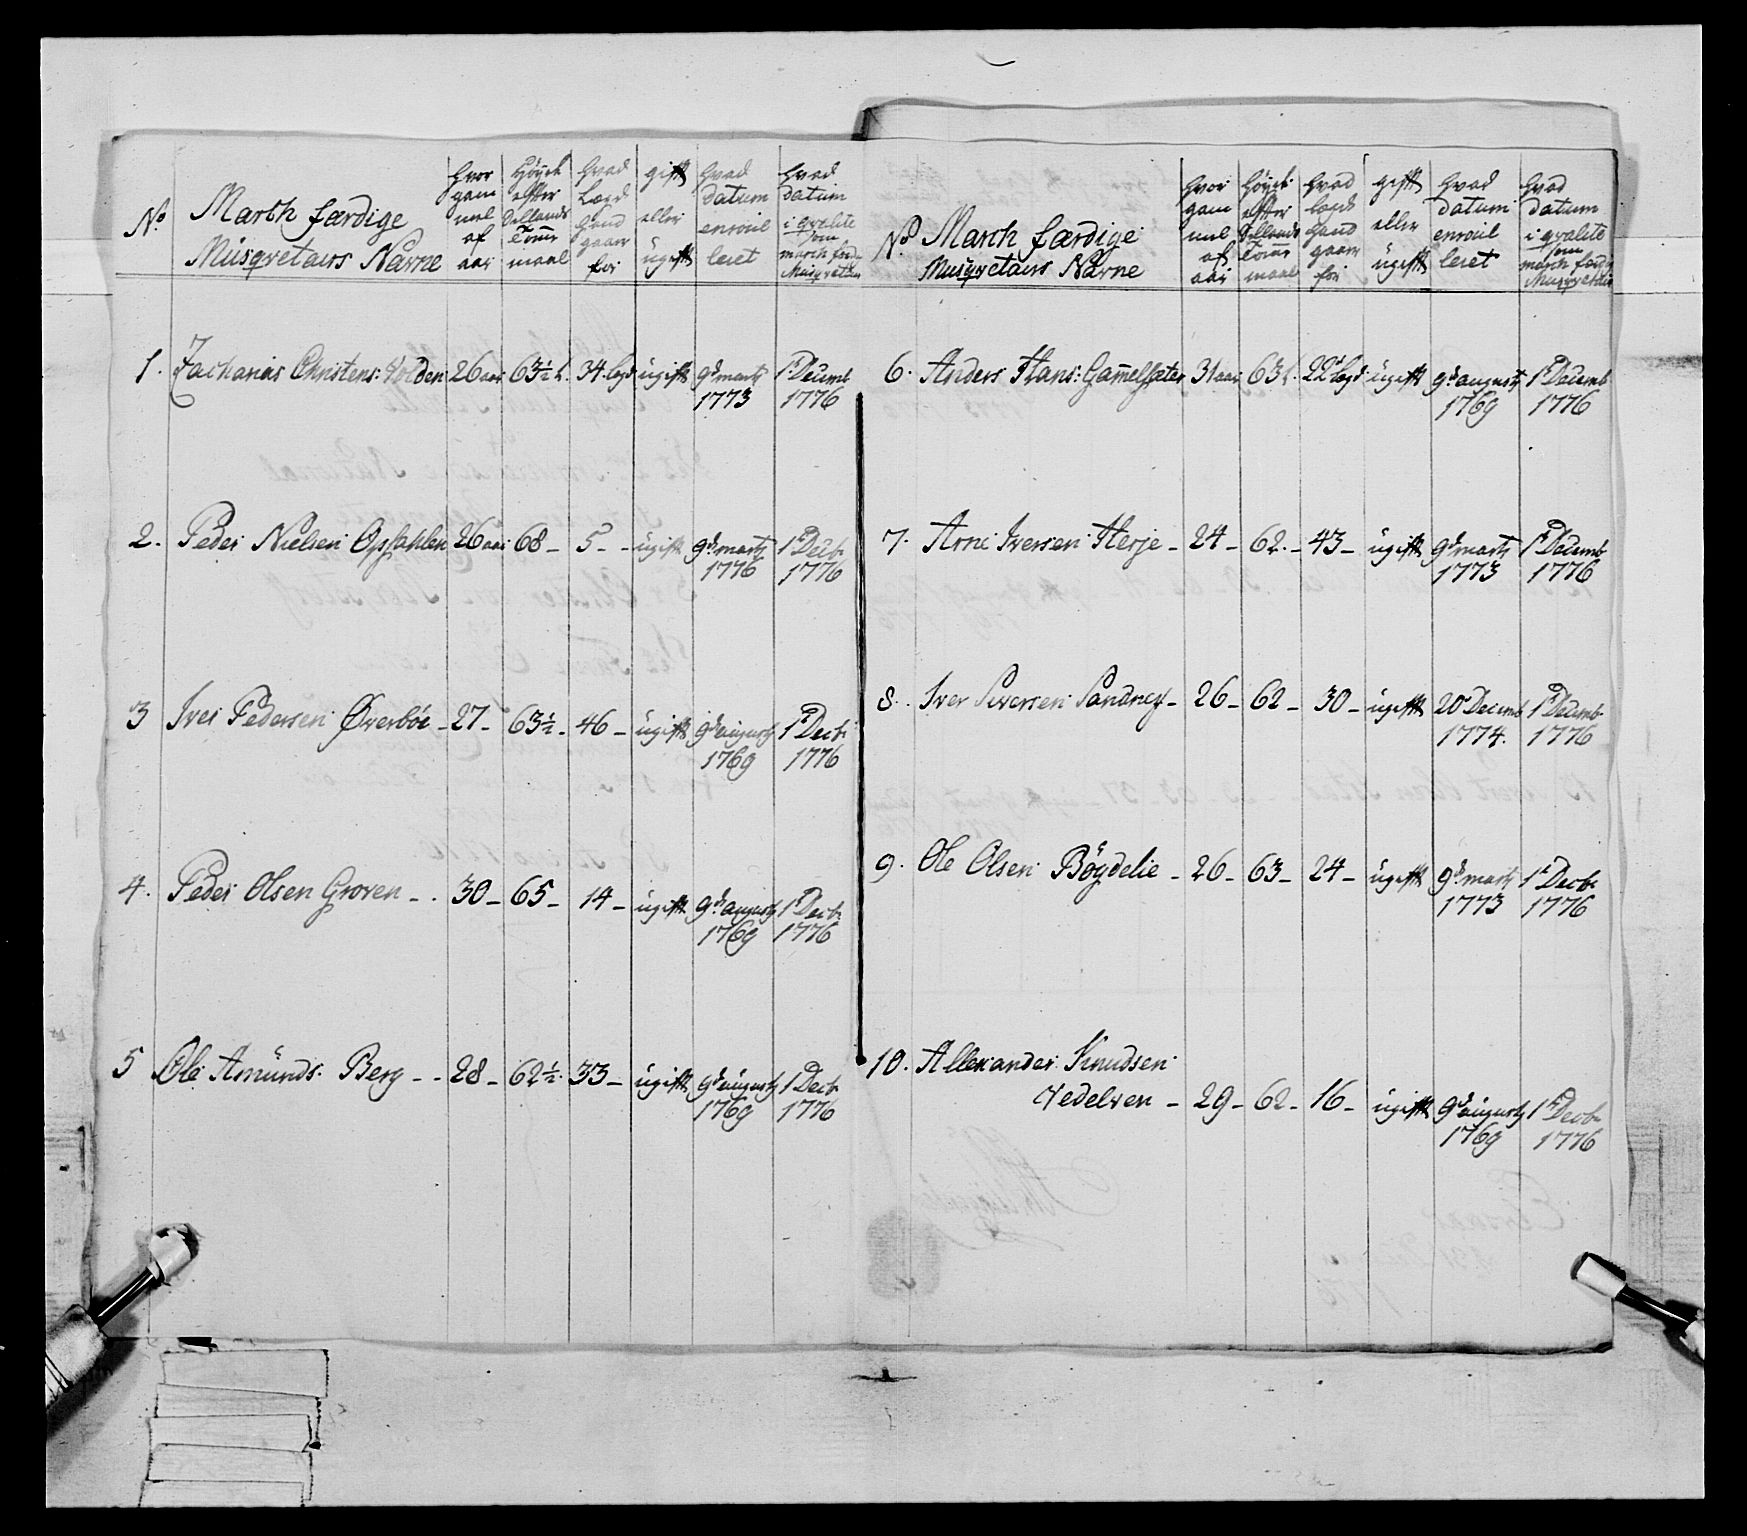 No
March færdige
Musqvetairs Nafne
hvor
gam
mel
af
aar
Höyde
efter
Sellands
Tomme
maal
hvad
Lægd
Hand
gaar
for
gift
eller
ugift
hvad
datum
enroul
leret
hvad
datum
i qvalite
som
march færdig
Musqvetair
1. Zacharias Christens: Volden 26 aar 63½ t. 34 legd ugift 9d marty 1t Decemb
1773 1776
2. Peder Nielsen Opsahlen 26 aar 68 - 5 - - ugift 9d marty 1t Decb:
1776 1776
3 Iver Pedersen Øverböe - 27 - 63½ - 46 - ugift 9d augusty 1t Decb:
1769 1776
4. Peder Olsen Groven - . 30 - 65 - 14 - ugift 9d augusty 1t Decb:
1769 1776
5 Ole Amunds: Berg - - 28 - 62½ 33 - ugift 9d augusty 1t Decb:
1769 1776
No
March færdige
Musqvetairs Nafne
hvor
gam
mel
af
aar
höyde
efter
Sellands
Tomme
maal
hvad
legds
Hand
gaar
for
gift
eller
ugift
hvad
datum
enroul
leret
hvad
datum
i qvalite
som
march færdig
Musqvetair
6. Anders Hans: Gamelsæter 31 aar 63 t. 22d legd ugift 9d augusty 1t Decemb
1769 1776
7. Arne Iversen Herje - 24 - 62. - 43 - ugift 9d marty 1t Decemb
1773 1776
8. Iver Siversen Sandnes - 26 - 62 - 30 - ugift 20d Decemb 1t Decemb
1774. 1776
9. Ole Olsen Böydelie - 26 - 63 - 24 - ugift 9d marty 1t Decb:
1773 1776
10. Allexander Knudsen
Vedelven - 29 - 62 - 16 - ugift 9d augusty 1t Decb:
1769 1776